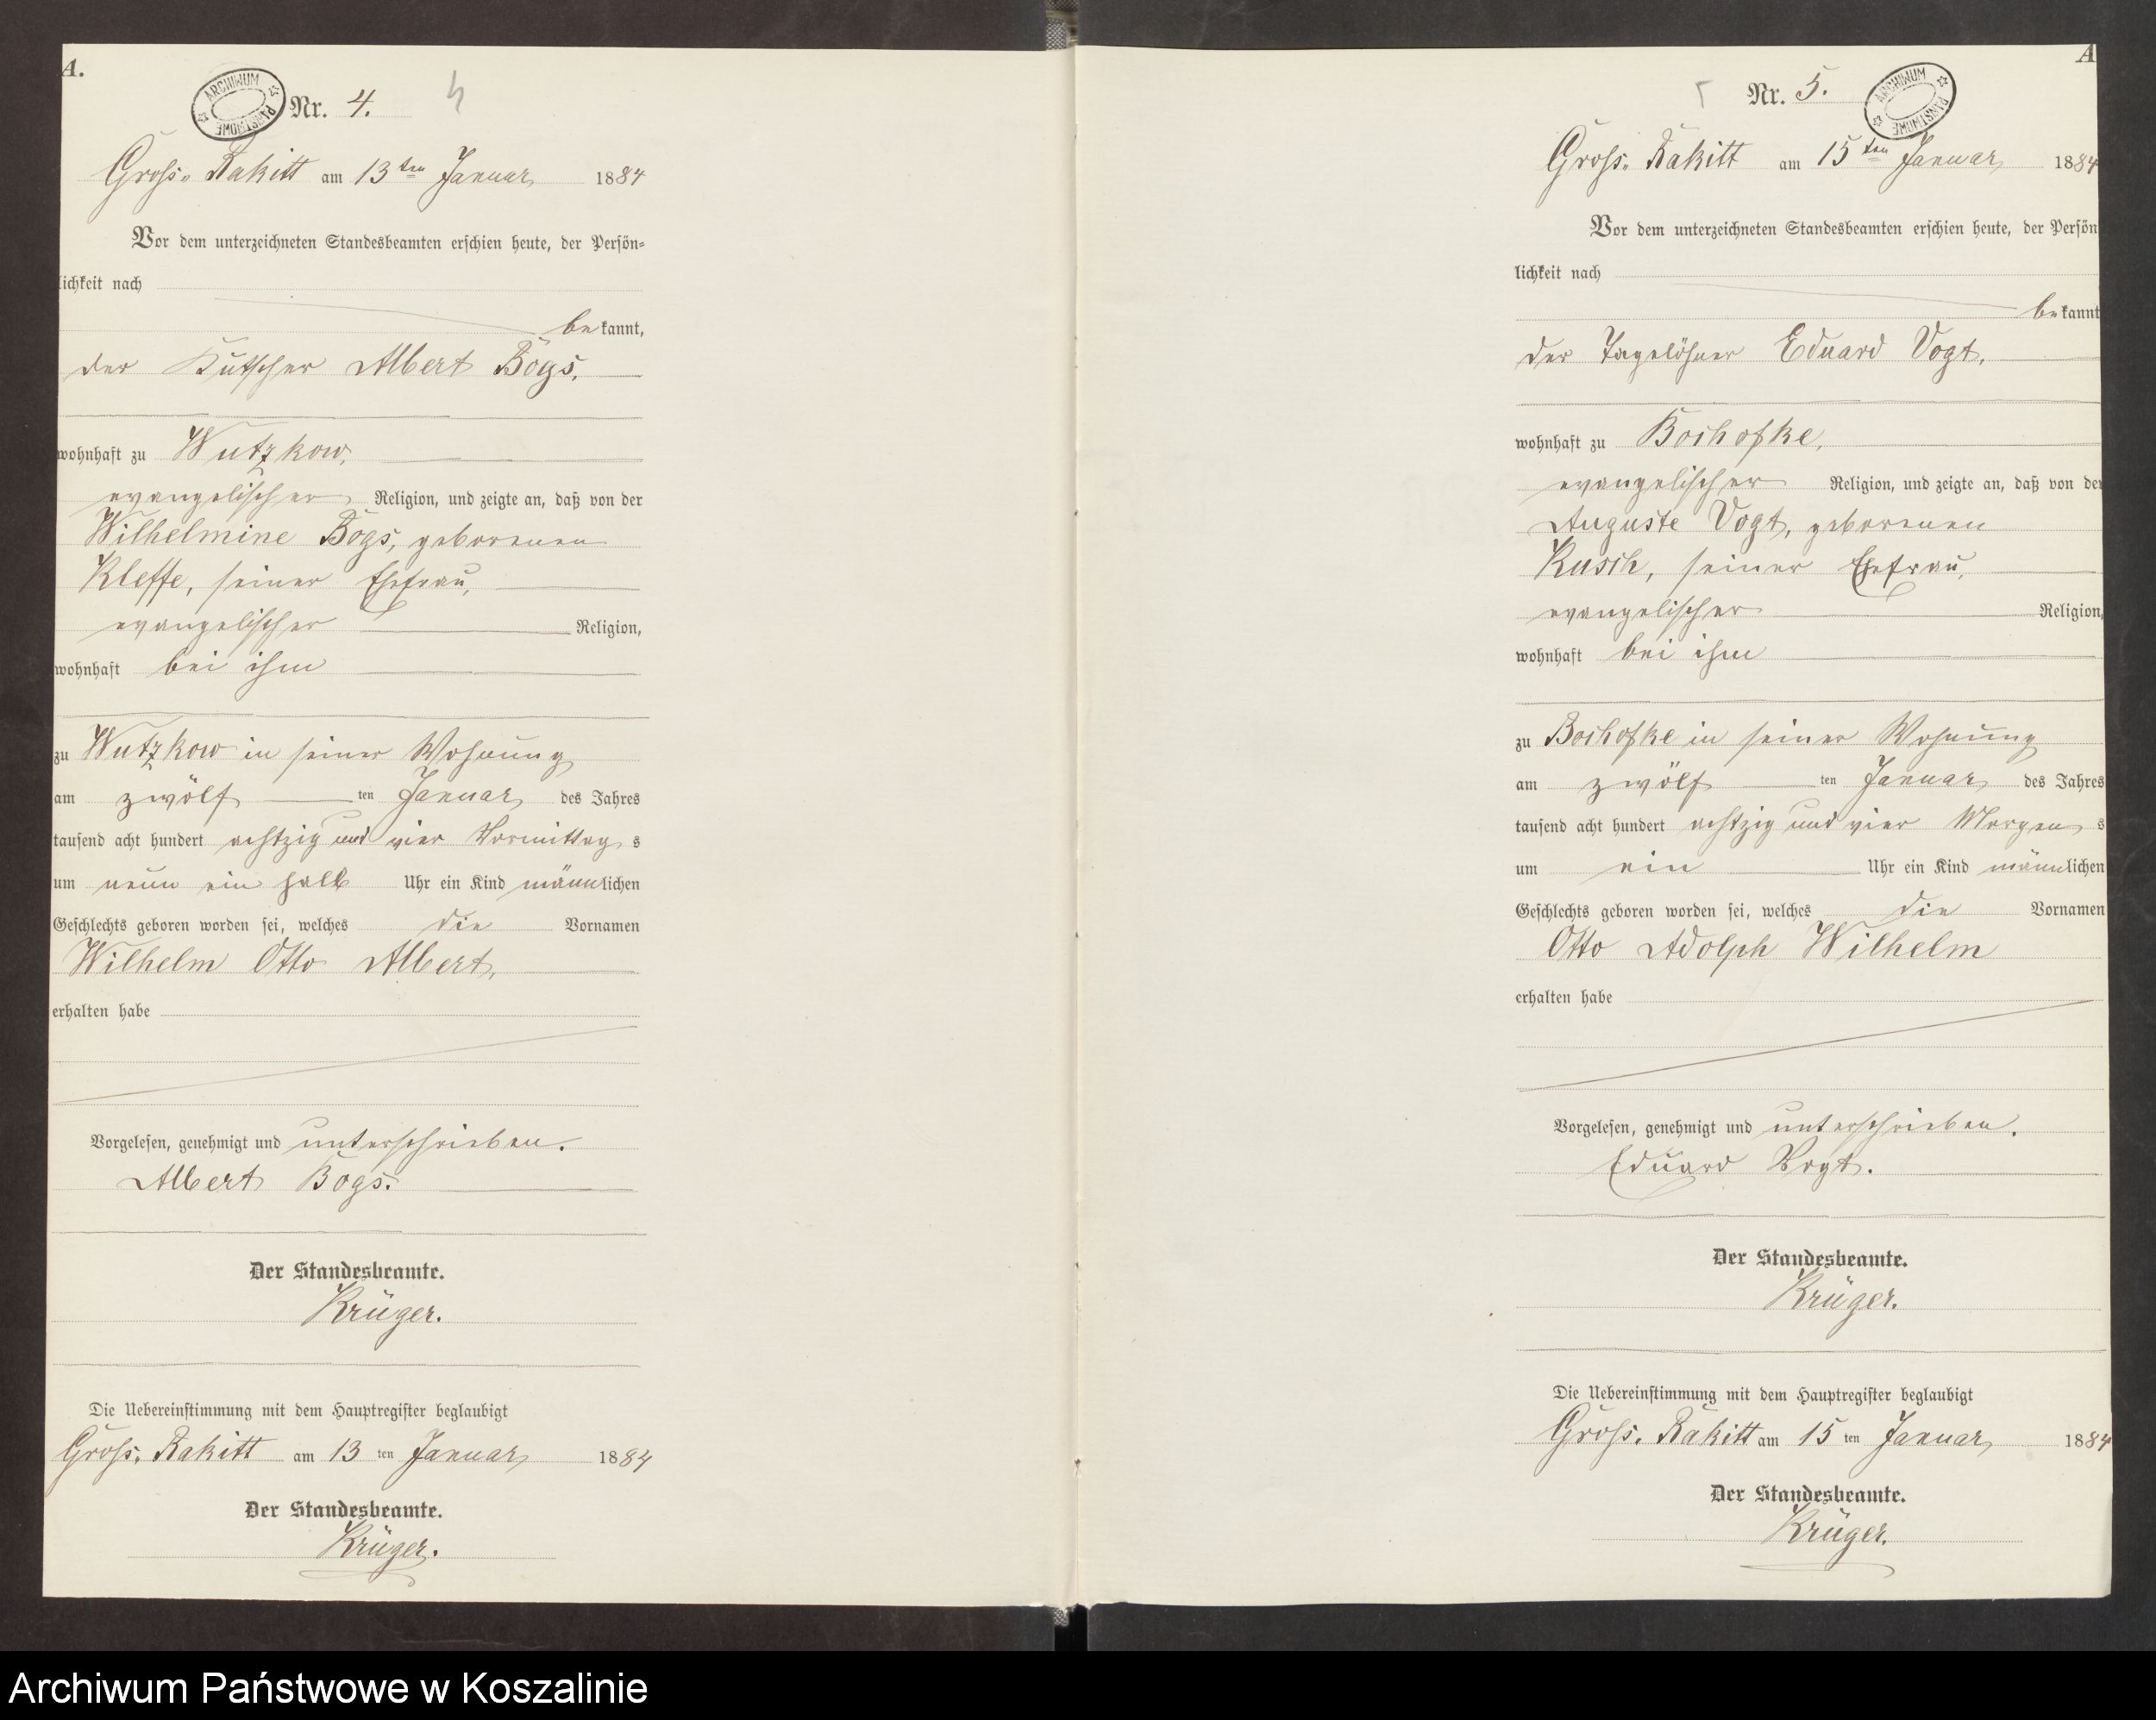 A.
ARCHIWUM PAŃSTWOWE
Nr. 4.
4
Groß-Rakitt am 13ten Januar 1884
Vor dem unterzeichneten Standesbeamten erschien heute, der Persön-
lichkeit nach
bekannt,
der Kutscher Albert Bogs,
wohnhaft zu Wutzkow,
evangelischer Religion, und zeigte an, daß von der
Wilhelmine Bogs, geborenen
Kleffe, seiner Ehefrau,
evangelischer Religion,
wohnhaft bei ihm
zu Wutzkow in seiner Wohnung
am zwölf ten Januar des Jahres
tausend acht hundert achtzig und vier Vormittags
um neun ein halb Uhr ein Kind männlichen
Geschlechts geboren worden sei, welches die Vornamen
Wilhelm Otto Albert,
erhalten habe
Vorgelesen, genehmigt und unterschrieben.
Albert Bogs.
Der Standesbeamte.
Krüger.
Die Uebereinstimmung mit dem Hauptregister beglaubigt
Groß. Rakitt am 13 ten Januar 1884
Der Standesbeamte.
Krüger.
A
5
Nr. 5.
ARCHIWUM PAŃSTWOWE
Groß-Rakitt am 15ten Januar 1884
Vor dem unterzeichneten Standesbeamten erschien heute, der Persön
lichkeit nach
bekannt
der Tagelöhner Eduard Vogt,
wohnhaft zu Bochofke,
evangelischer Religion, und zeigte an, daß von der
Auguste Vogt, geborenen
Kusch, seiner Ehefrau,
evangelischer Religion,
wohnhaft bei ihm
zu Bochofke in seiner Wohnung
am zwölf ten Januar des Jahres
tausend acht hundert achtzig und vier Morgens
um ein Uhr ein Kind männlichen
Geschlechts geboren worden sei, welches die Vornamen
Otto Adolph Wilhelm
erhalten habe
Vorgelesen, genehmigt und unterschrieben.
Eduard Vogt.
Der Standesbeamte.
Krüger.
Die Uebereinstimmung mit dem Hauptregister beglaubigt
Groß. Rakitt am 15 ten Januar 1884
Der Standesbeamte.
Krüger.
Archiwum Państwowe w Koszalinie